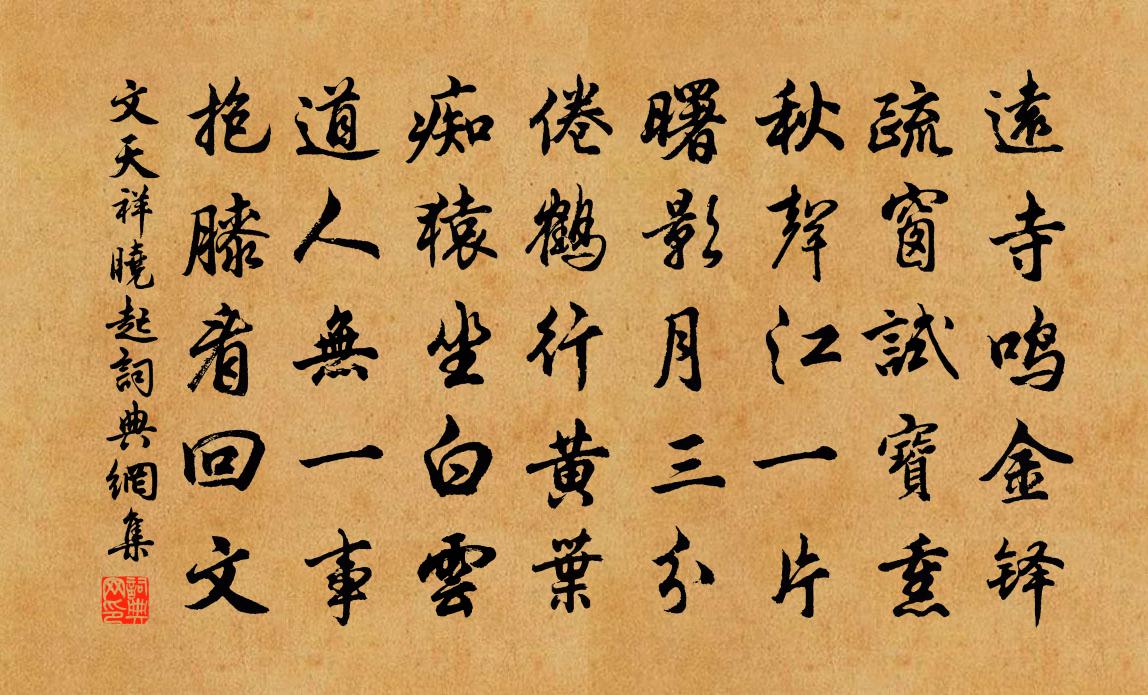 遠寺鳴金铎
疏窗試寶熏
秋聲江一片
曙影月三分
倦鶴行黃葉
痴猿坐白雲
道人無一事
抱膝看回文
文天祥曉起詞典網集
詞典网印